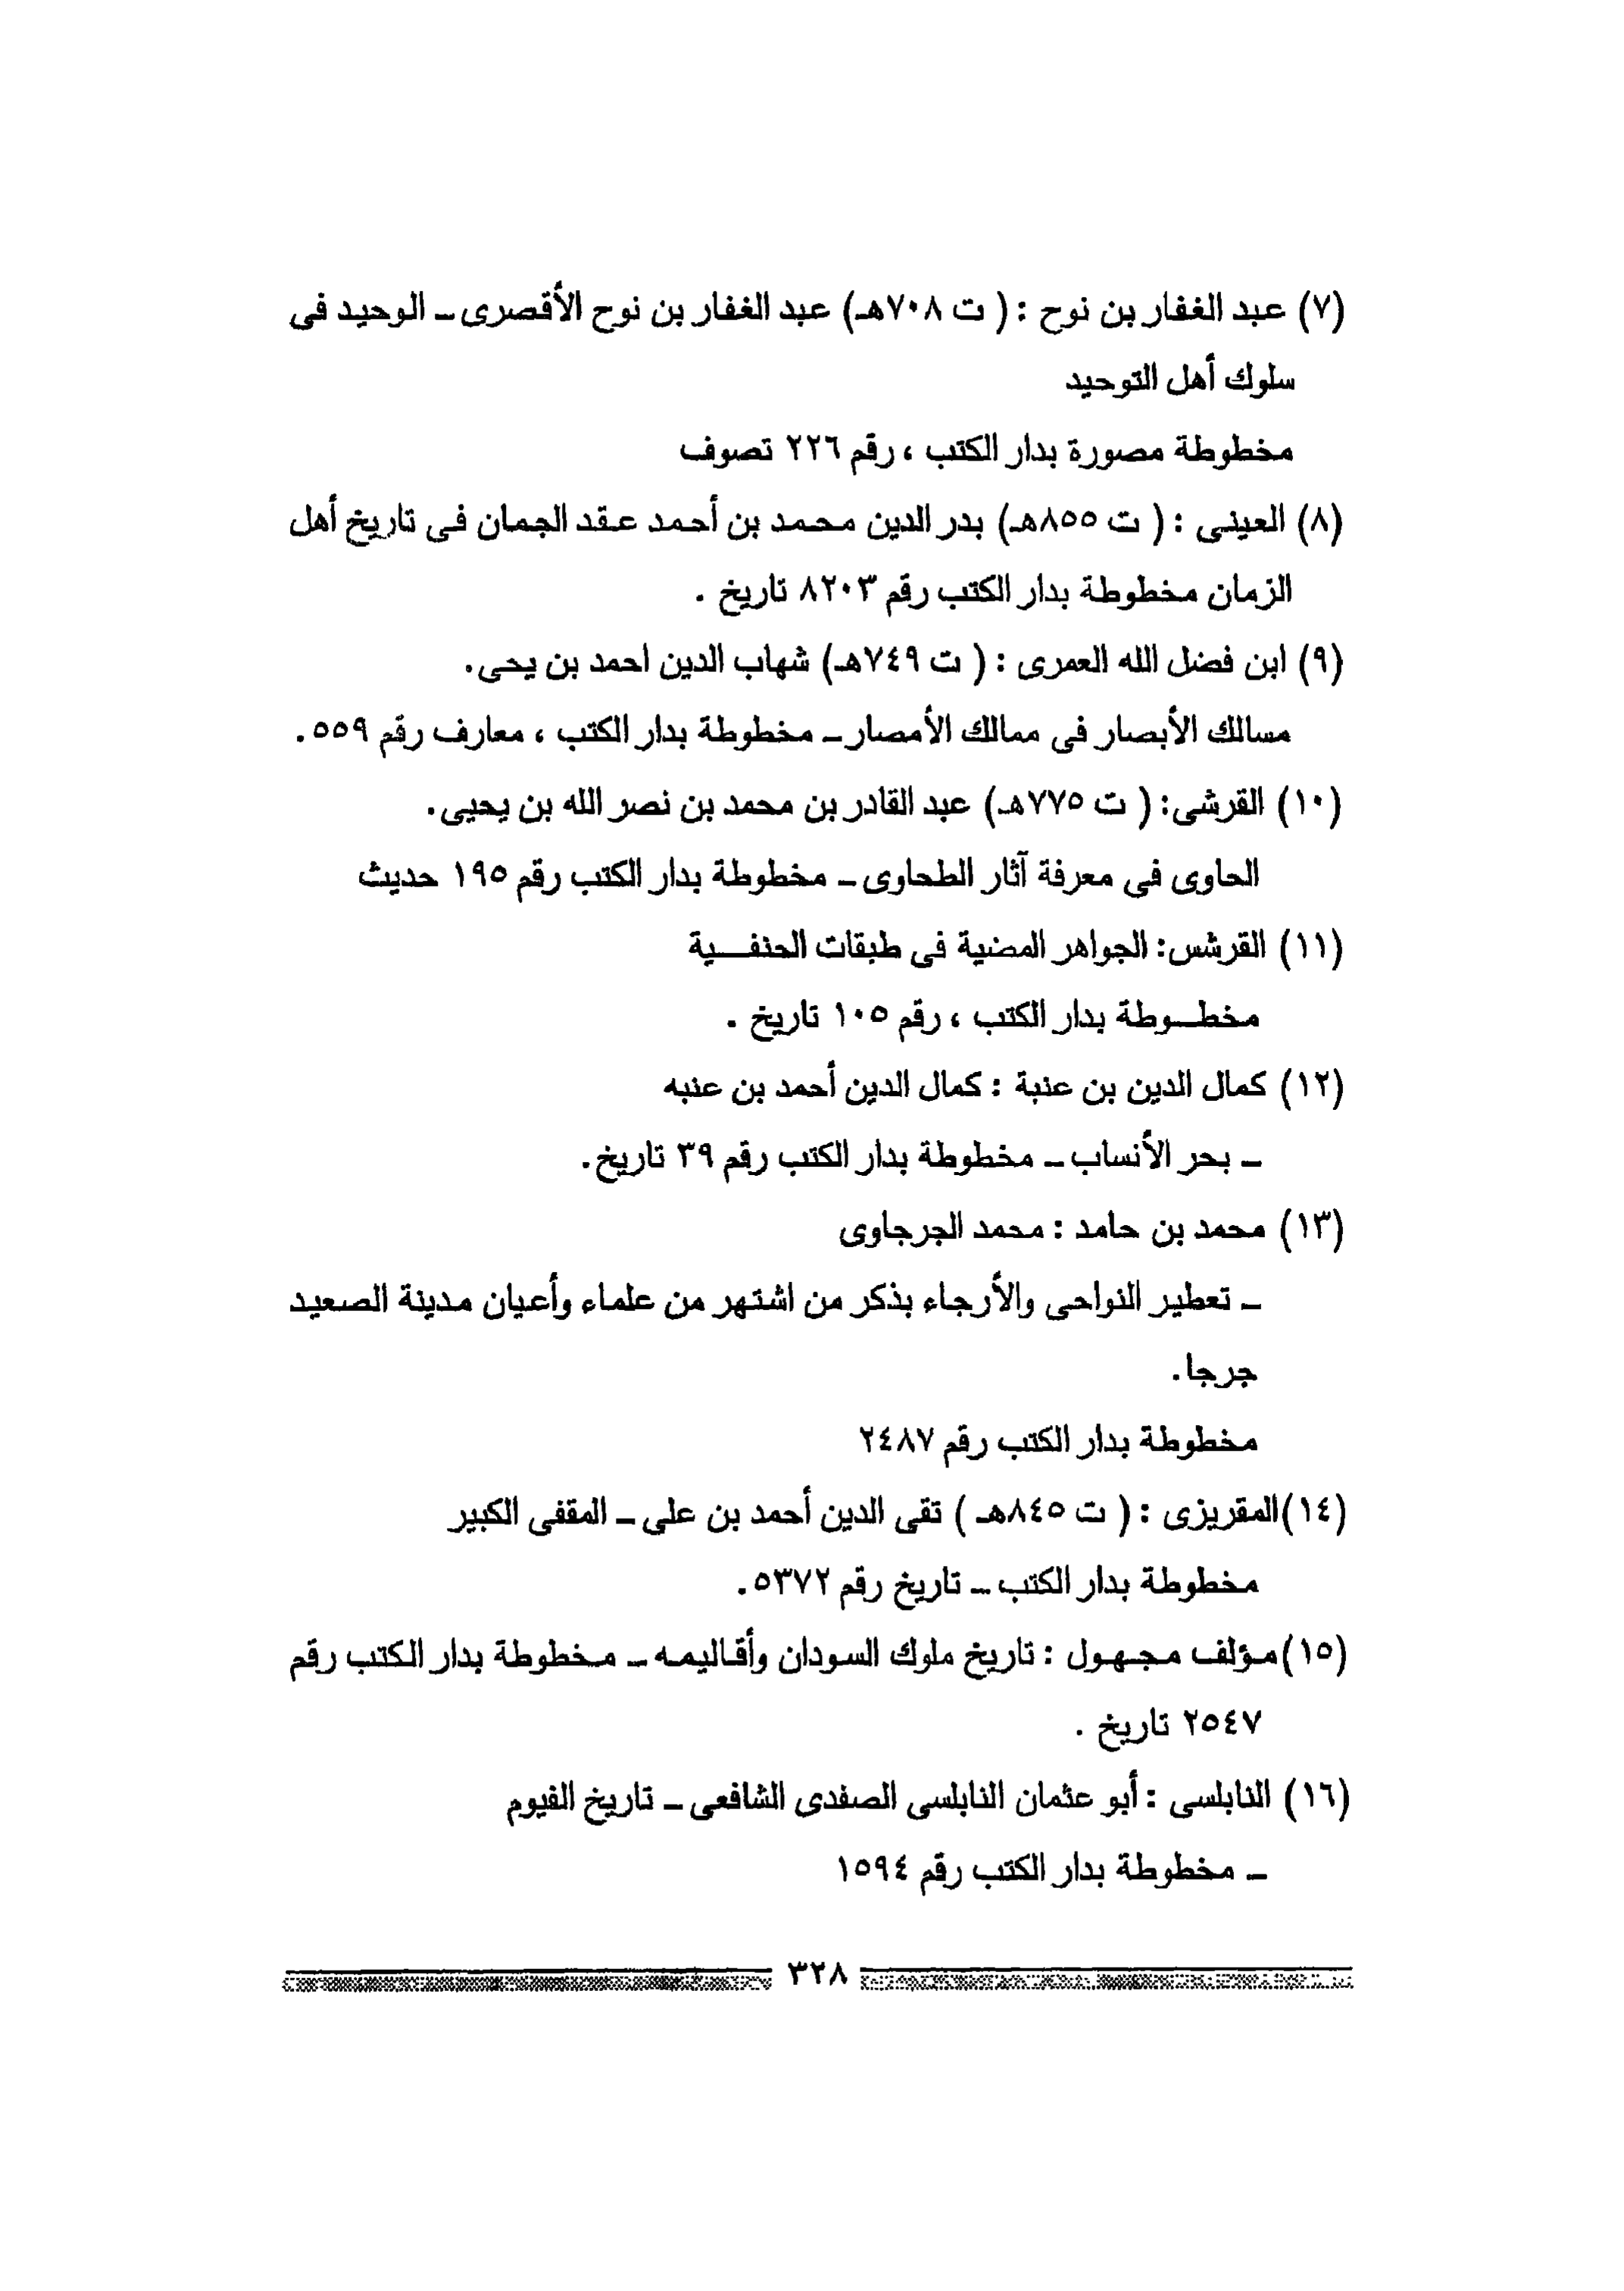 (٧) عبد الغفار بن نوح : ( ت ٧٠٨هـ) عبد الغفار بن نوح الأقصرى ـ الوحيد فى
سلوك أهل التوحيد
مخطوطة مصورة بدار الكتب ، رقم ٢٢٦ تصوف
(٨) العينى : ( ت ٨٥٥هـ) بدر الدين محمد بن أحمد عقد الجمان فى تاريخ أهل
الزمان مخطوطة بدار الكتب رقم ٨٢٠٣ تاريخ .
(٩) ابن فضل الله العمرى : ( ت ٧٤٩هـ) شهاب الدين احمد بن يحى.
مسالك الأبصار فى ممالك الأمصار ـ مخطوطة بدار الكتب ، معارف رقم ٥٥٩ .
(١٠) القرشى: ( ت ٧٧٥هـ) عبد القادر بن محمد بن نصر الله بن يحيى.
الحاوى فى معرفة آثار الطحاوى ـ مخطوطة بدار الكتب رقم ١٩٥ حديث
(١١) القرشس: الجواهر المضية فى طبقات الحنفـــية
مخطــوطة بدار الكتب ، رقم ١٠٥ تاريخ .
(١٢) كمال الدين بن عنبة : كمال الدين أحمد بن عنبه
ـ بحر الأنساب ـ مخطوطة بدار الكتب رقم ٣٩ تاريخ.
(١٣) محمد بن حامد : محمد الجرجاوى
ـ تعطير النواحى والأرجاء بذكر من اشتهر من علماء وأعيان مدينة الصعيد
جرجا.
مخطوطة بدار الكتب رقم ٢٤٨٧
(١٤)المقريزى : ( ت ٨٤٥هـ ) تقى الدين أحمد بن على ـ المقفى الكبير
مخطوطة بدار الكتب ـ تاريخ رقم ٥٣٧٢.
(١٥)مؤلف مجهول : تاريخ ملوك السودان وأقاليمه ـ مخطوطة بدار الكتب رقم
٢٥٤٧ تاريخ .
(١٦) النابلسى : أبو عثمان النابلسى الصفدى الشافعى ـ تاريخ الفيوم
ـ مخطوطة بدار الكتب رقم ١٥٩٤
٣٢٨